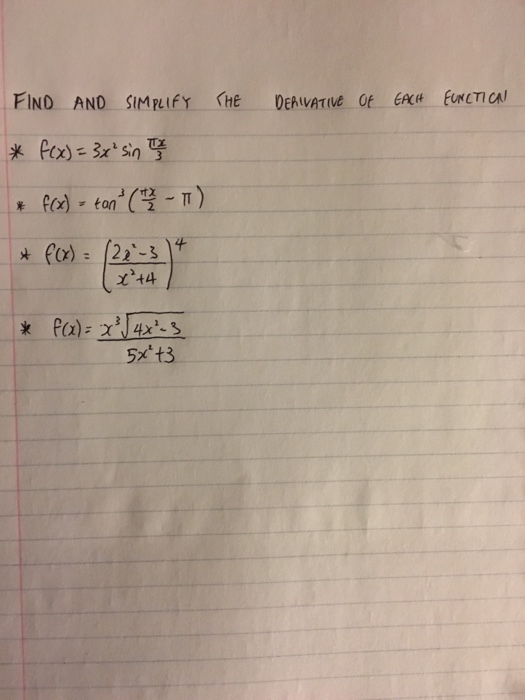 FIND AND SIMPLIFY THE DERIVATIVE OF EACH FUNCTION
* f(x) = 3x² sin πx/3
* f(x) = tan³ (πx/2 - π)
* f(x) = ((2x²-3)/(x²+4))⁴
* f(x) = (x³√(4x²-3))/(5x²+3)